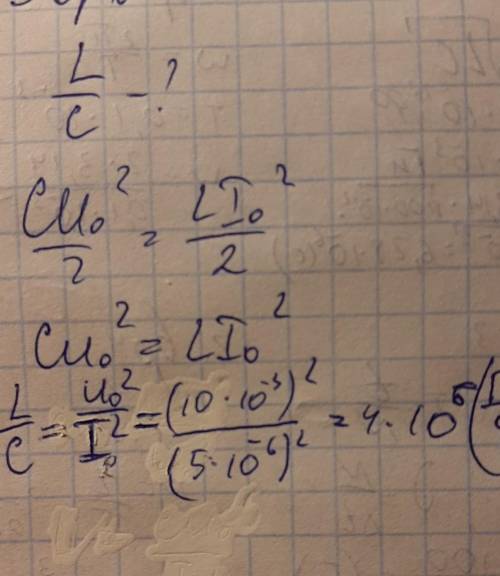 L/C - ?
CU₀²/2 = LI₀²/2
CU₀² = LI₀²
L/C = U₀²/I₀² = (10·10⁻³)²/(5·10⁻⁶)² = 4·10⁶ (